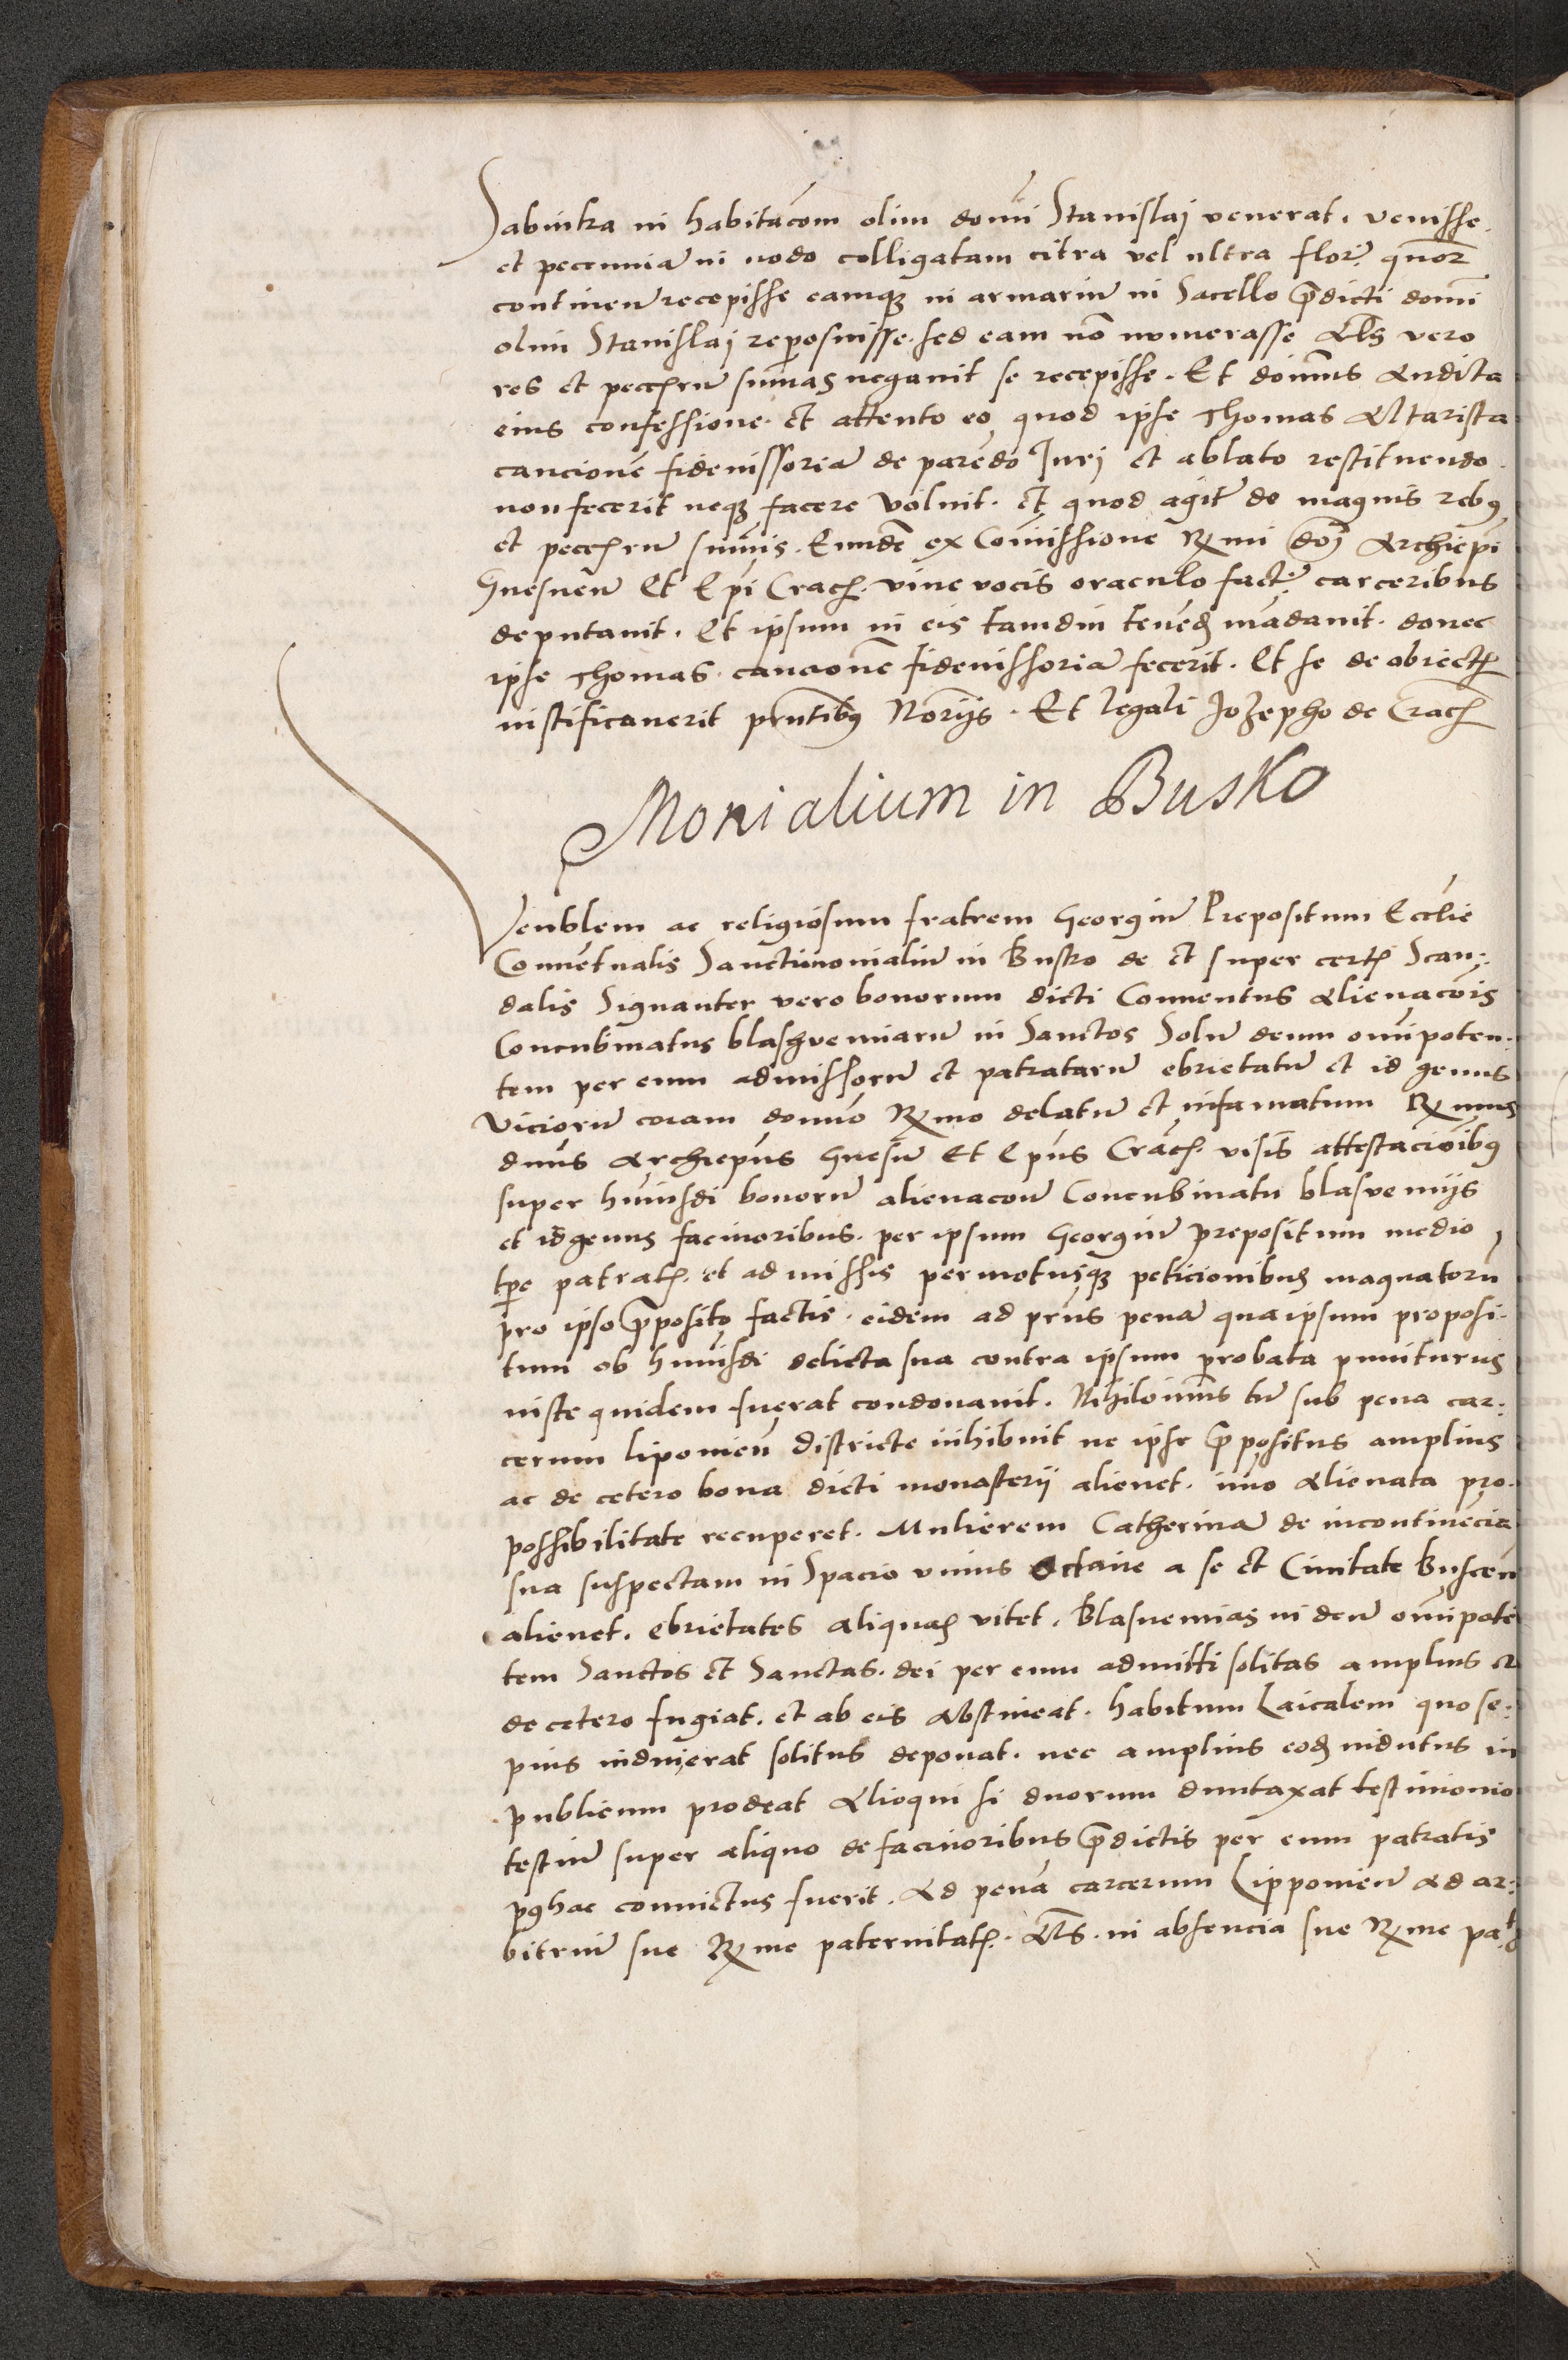 Sabinka in habitacom olim domi Stanislaj venerat. venisse.
et pecunnia in nodo colligatam citra vel ultra flor. quor
continen recepisse eamq in armariu in Sacello pdicti domi
olim Stanislaj reposuisse. sed eam no numerasse Als vero
res et peccharu sumas negauit se recepisse. Et domus Audita
eius confessione. et attento eo quod ipse Thomas Altarista
caucione fideiussoria de parendo Jurj et ablato restituendo.
non fecerit neq facere voluit. et quod agit de magnis rebq
et peccharu sumis. Eunde ex Comissione Rmi doj Archiepi
Gnesnen Et Epi Crach. viue vocis oraculo fact carceribus
deputauit. Et ipsum in eis tamdiu tened madauit. donec
ipse Thomas caucione fideiussoria fecerit. Et se de obiectis
iustificauerit pntibq Norijs. Et legali Jozepho de Crach
Monialium in Busko
Venblem ac religiosum fratrem Georgiu Prepositum Ecclie
Conuentualis Sanctimonialiu in Busko de et super certis Scan:
dalis Signanter vero bonorum dicti Conuentus Alienacois
Concubinatus blasphemiaru in Sanctos Solu deum omipoten.
tem per eum admissoru et patrataru ebrietatu et id genus
vicioru coram domno Rmo delatu et infamatum Rmus
dnus Archiepus Gnesn Et Epus Crach. visis attestacioibq
super huiusdi bonoru alienacou Concubinatu blasvemijs
et idgenus facinoribus. per ipsum Georgiu prepositum medio
tpe patratis. et admissis permotusq peticionibus magnatoru
pro ipso pposito factis. eidem ad pns pena qua ipsum proposi.
tum ob huiusdi delicta sua contra ipsum probata puniturus
iuste quidem fuerat condonauit. Nihilomus tn sub pena car:
cerum liponien districte inhibuit ne ipse ppositus amplius
ac de cetero bona dicti monasterii alienet. imo Alienata pro.
possibilitate recuperet. Mulierem Catherina de incontinecia
sua suspectam in Spacio vnius Octaue a se et Ciuitate Buscen
alienet. ebrietates aliquas vitet. Blasuemias in deu omipote
tem Sanctos et Sanctas. dei per eum admitti solitas amplius et
de cetero fugiat. et ab eis Abstineat. habitum Laicalem quo se:
pius induierat solitus deponat. nec amplius eod indutus in
publicum prodeat Alioqui si duorum duntaxat testimonio
testiu super aliquo de facinoribus pdictis per eum patratis
pqhac conuictus fuerit. Ad pena carcerum Lipponien Ad ar:
bitriu sue Rme paternitatis. Als. in absencia sue Rme pat